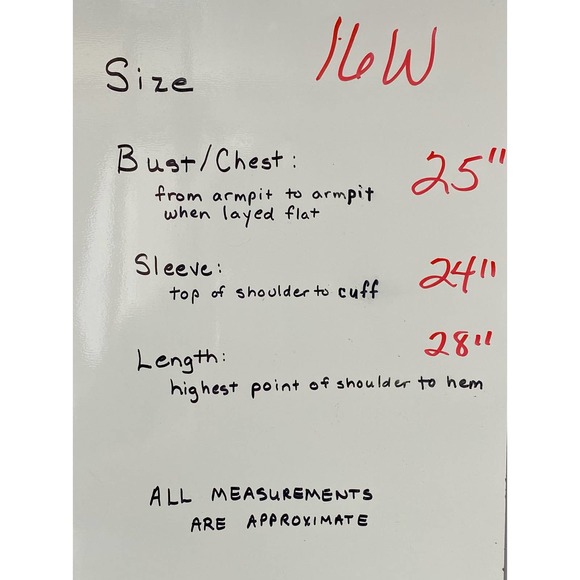 Size 16W
Bust/Chest: 25"
from armpit to armpit
when layed flat
Sleeve: 24"
top of shoulder to cuff
Length: 28"
highest point of shoulder to hem
ALL MEASUREMENTS
ARE APPROXIMATE